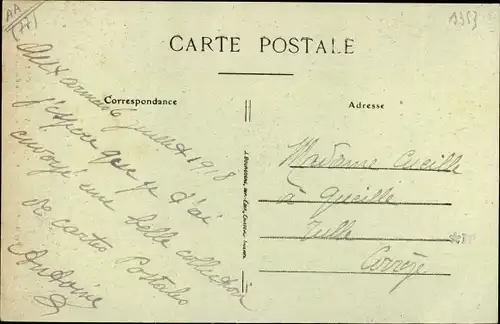 AA
(77)
CARTE POSTALE
Correspondance
Adresse
Aux armées 6 juillet 1918
j'espère que je t'ai
envoyé une belle collection
de cartes Postales
Antoine
Madame Cueille
à Queille
Tulle
Corrèze